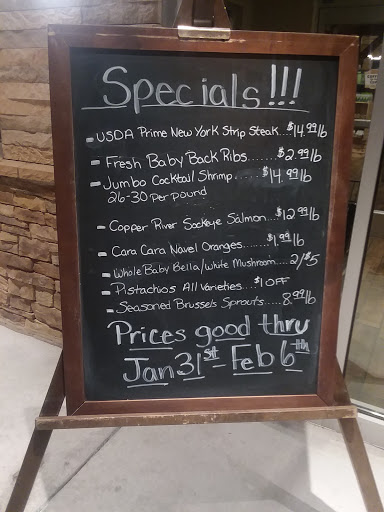 Specials!!!
- USDA Prime New York Strip Steak...$14.99lb
- Fresh Baby Back Ribs.......$2.99lb
- Jumbo Cocktail Shrimp.....$14.99lb
26-30 Per pound
- Copper River Sockeye Salmon...$12.99lb
- Cara Cara Navel Oranges......$1.99lb
- Whole Baby Bella/White Mushroom....2/$5
- Pistachios All Varieties....$1 OFF
- Seasoned Brussels Sprouts.....8.99lb
Prices good thru
Jan 31st - Feb 6th